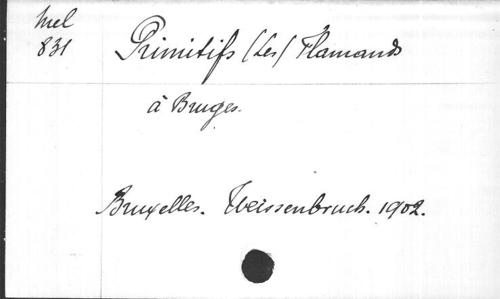 Mel
831
Primitifs (Les) Flamands
à Bruges.
Bruxelles. Weissenbruch. 1902.